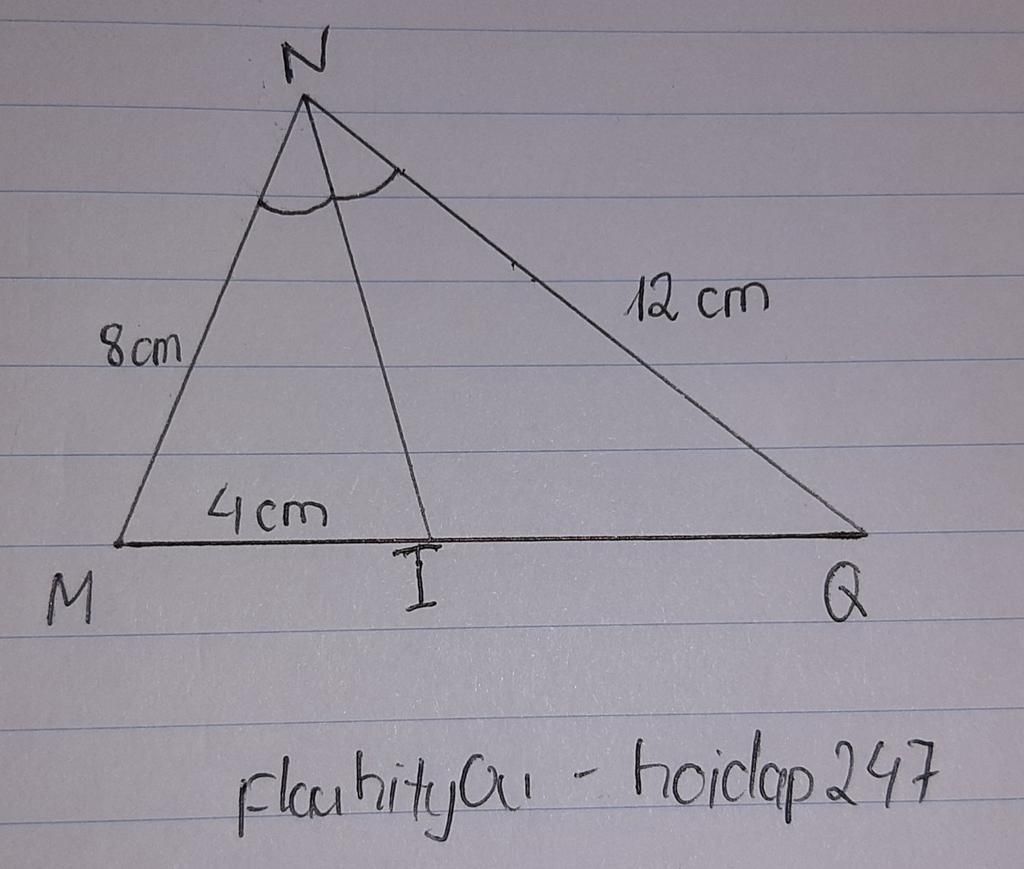 N
8cm
12 cm
4cm
M
I
Q
- hoidap247